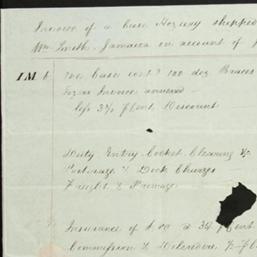 Invoice of a Case Hosiery shipped
Wm Smith. Jamaica on account of
IM & one case cont'g 100 doz Braces
For as Invoice annexed
less 3½ ₱Cent Discount
Duty Entry Cocket Clearing &c
Porterage & Dock Charges
Freight & Primage
Insurance of £ 00 @ 3/4 ₱Cent
Commission &